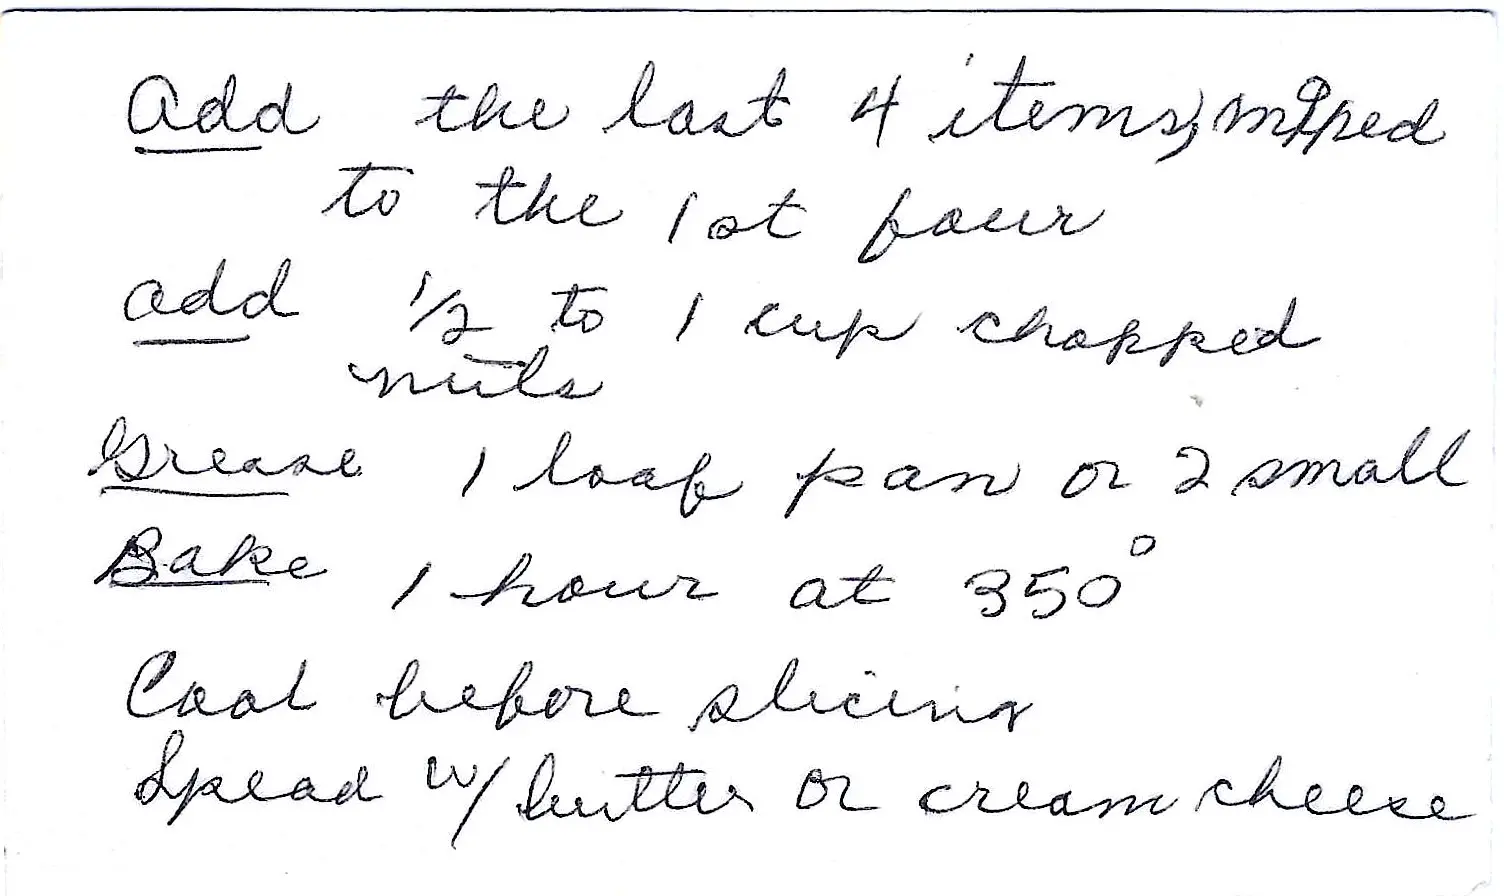 Add the last 4 items, mixed
to the 1st four
add 1/2 to 1 cup chopped
nuts
Grease 1 loaf pan or 2 small
Bake 1 hour at 350°
Cool before slicing
Spread w/ butter or cream cheese